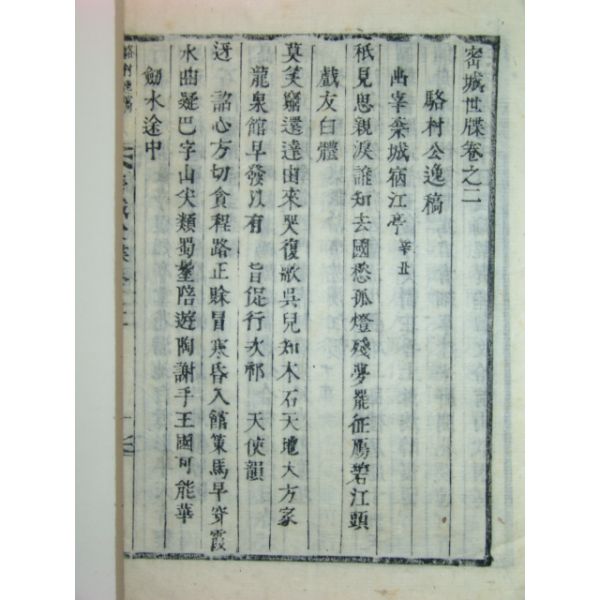 密城世牒卷之二
駱村公逸稿
出宰藥城宿江亭 辛丑
秖見思親淚誰知去國愁孤燈殘夢罷征鴈碧江頭
戲友白體
莫笑窮還達由來哭復歌吳兒知木石天地大方家
龍泉館早發以有 旨促行次祁 天使韻
迓 詔心方切貪程路正賒冒寒昏入館策馬早穿霞
水曲疑巴字山尖類蜀髻陪遊陶謝手王國可能華
劒水途中